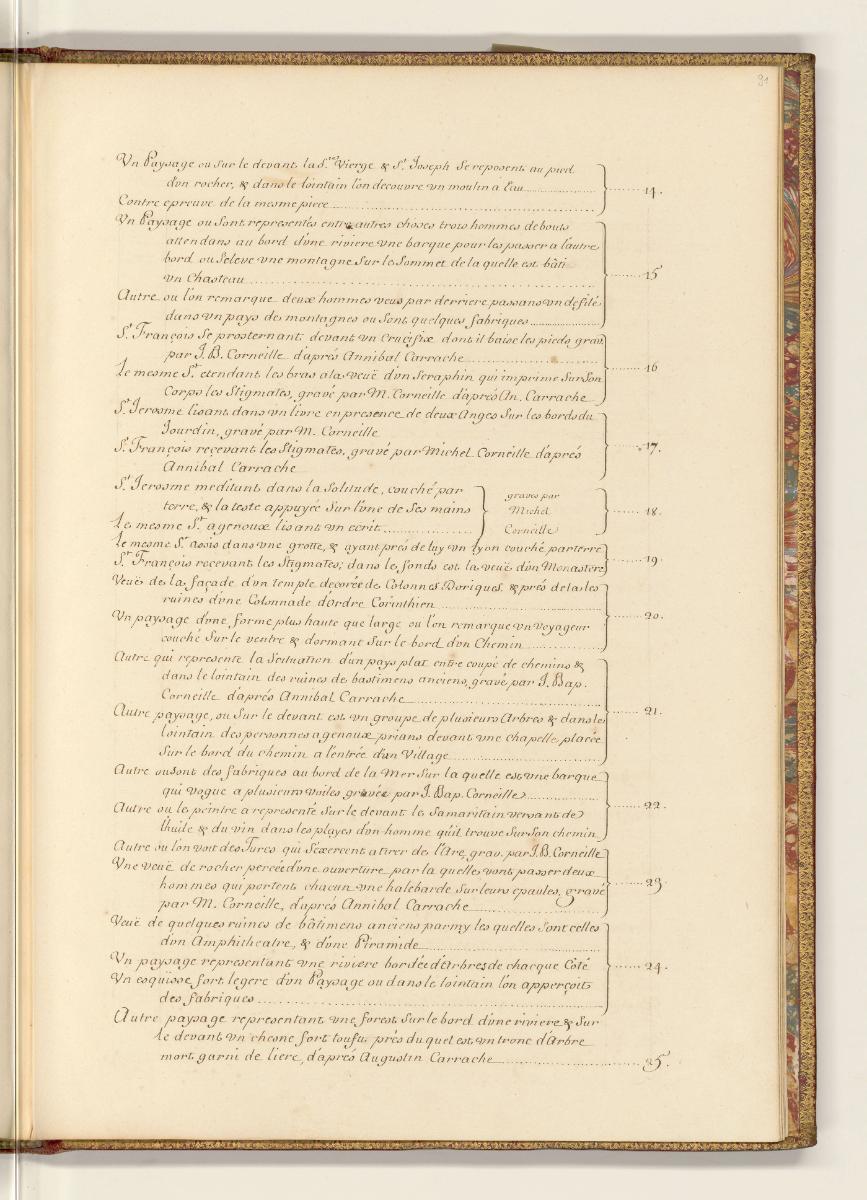 31
Vn Paysage ou sur le devant la S.te Vierge & S.t Joseph se reposent au pied
d'vn rocher, & dans le lointain l'on decouvre vn moulin à Eau
Contre epreuve de la mesme piece ........ 14.
Vn Paysage ou sont representés entre autres choses trois hommes debouts
attendans au bord d'vne riviere vne barque pour les passer a l'autre
bord ou s'eleve vne montagne sur le sommet de la quelle est bâti
vn Chasteau ........ 15
Autre ou l'on remarque deux hommes veus par derriere passans vn defilé
dans vn pays de montagnes ou sont quelques fabriques
S.t François se prosternant devant vn Crucifix dont il baise les pieds gravé
par J. B. Corneille d'aprés Annibal Carrache ........ 16
Le mesme S.t etendant les bras a la veuë d'vn Seraphin qui imprime sur son
Corps les Stigmates, gravé par M. Corneille d'aprés An. Carrache
S.t Jerosme lisant dans vn livre en presence de deux Anges sur les bords du
Jourdin, gravé par M. Corneille
S.t François reçevant les Stigmates, gravé par Michel Corneille d'aprés ........ 17.
Annibal Carrache
S.t Jerosme meditant dans la Solitude, couché par
terre, & la teste appuyée sur l'vne de ses mains
Le mesme S.t agenoux lisant vn ecrit
gravés par
Michel
Corneille ........ 18.
Le mesme S.t assis dans vne grotte, & ayant prés de luy vn Lyon couché par terre
S.t François recevant les Stigmates; dans le fonds est la veuë d'vn Monastere ........ 19.
Veuë de la façade d'vn temple decorée de Colonnes Doriques & prés de la les
ruines d'vne Colonnade d'Ordre Corinthien
Vn paysage d'vne forme plus haute que large ou l'on remarque vn voyageur ........ 20.
couché sur le ventre & dormant sur le bord d'vn Chemin
Autre qui represente la Scituation d'vn pays plat entre coupé de chemins &
dans le lointain des ruines de bastimens anciens, gravé par J. Bap.
Corneille d'aprés Annibal Carrache
Autre paysage, ou sur le devant est vn groupe de plusieurs Arbres & dans le ........ 21.
lointain des personnes agenoux prians devant vne chapelle placée
sur le bord du chemin a l'entrée d'vn Village
Autre ou sont des fabriques au bord de la Mer sur la quelle est vne barque
qui vogue a plusieurs voiles gravée par J. Bap. Corneille
Autre ou le peintre a representé sur le devant le Samaritain versant de ........ 22.
l'huile & du vin dans les playes d'vn homme qu'il trouve sur son chemin
Autre ou l'on voit des Turcs qui s'éxercent a tirer de l'Arc, grav. par J. B. Corneille
Vne veuë de rocher percée d'vne ouverture par la quelle vont passer deux
hommes qui portent chacun vne halebarde sur leurs epaules, gravé ........ 23.
par M. Corneille, d'aprés Annibal Carrache
Veuë de quelques ruines de bâtimens anciens parmy les quelles sont celles
d'vn Amphitheatre, & d'vne Piramide
Vn paysage representant vne riviere bordée d'Arbres de chacque Côté ........ 24.
Vn esquisse fort legere d'vn Paysage ou dans le lointain l'on apperçoit
des fabriques
Autre paysage representant vne forest sur le bord d'vne riviere & sur
le devant vn chesne fort toufu, prés du quel est vn tronc d'Arbre
mort garni de liere, d'aprés Augustin Carrache ........ 25.